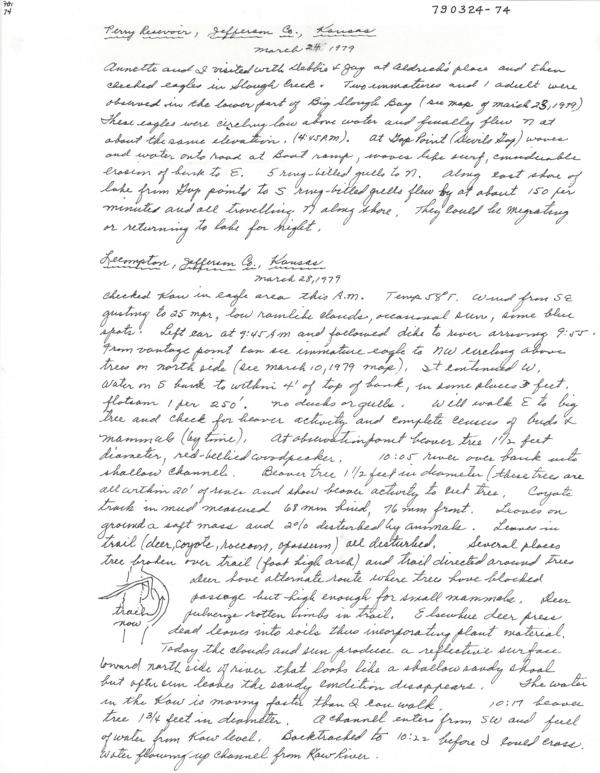 790324-74
Perry Reservoir, Jefferson Co., Kansas
March 24 1979
Annette and I visited with Debbie & Jay at Aldrich's place and then
checked eagles in Slough Creek. Two immatures and 1 adult were
observed in the lower part of Big Slough Bay (see map of March 23, 1979)
These eagles were circling low above water and finally flew N at
about the same elevation. (4:45 PM). At Gap Point (Devils Gap) waves
and water onto road at Boat ramp, waves like surf, considerable
erosion of bank to E. 5 ring-billed gulls to N. Along east shore of
lake from Gap point to S ring-billed gulls flew by at about 150 per
minutes and all travelling N along shore. They could be migrating
or returning to lake for night.
Lecompton, Jefferson Co., Kansas
March 28, 1979
Checked Kaw in eagle area this A.M. Temp 58°F. Wind from SE
gusting to 25 mpr, low rainlike clouds, occasional sun, some blue
spots. Left car at 9:45 AM and followed dike to river arriving 9:55.
From vantage point can see immature eagle to NW circling above
trees on north side (see March 10, 1979 map). It continued W.
Water on S bank to within 4' of top of bank, in some places 3 feet.
flotsam 1 per 250'. no ducks or gulls. Will walk E to big
tree and check for beaver activity and complete census of birds &
mammals (by time). At observation point beaver tree 1 1/2 feet
diameter, red-bellied woodpecker. 10:05 river over bank into
shallow channel. Beaver tree 1 1/2 feet in diameter (these trees are
all within 20' of river and show beaver activity to cut tree. Coyote
track in mud measured 68 mm hind, 76 mm front. Leaves on
ground a soft mass and 20% disturbed by animals. Leaves in
trail (deer, coyote, raccoon, opossum) all disturbed. Several places
tree broken over trail (foot high arch) and trail directed around trees
deer have alternate route where trees have blocked
passage but high enough for small mammals. Deer
pulverize rotten limbs in trail. Elsewhere deer press
dead leaves into soils thus incorporating plant material.
trail
now
Today the clouds and sun produce a reflective surface
toward north side of river that looks like a shallow sandy shoal
but after sun leaves the sandy condition disappears. The water
in the Kaw is moving faster than I can walk. 10:17 beaver
tree 1 3/4 feet in diameter. A channel enters from SW and full
of water from Kaw level. Backtracked to 10:22 before I could cross.
Water flowing up channel from Kaw River.